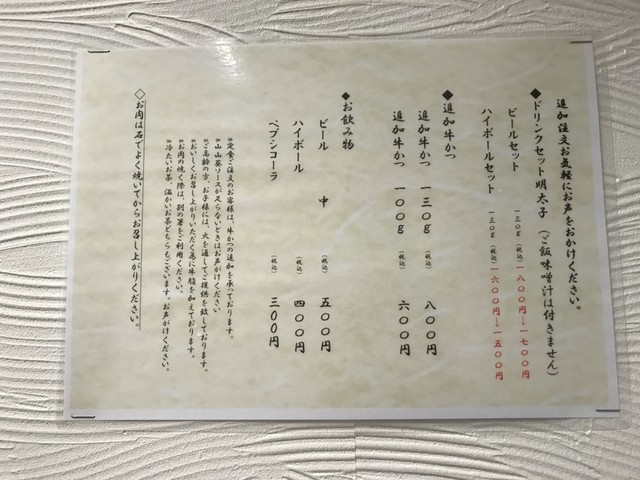 追加注文お気軽にお声をおかけください。
◆ドリンクセット明太子（ご飯味噌汁は付きません）
ビールセット 一三０g（税込）一八００円→一七００円
ハイボールセット 一三０g（税込）一六００円→一五００円
◆追加牛かつ
追加牛かつ 一三０g（税込）八００円
追加牛かつ 一００g（税込）六００円
◆お飲み物
ビール 中（税込）五００円
ハイボール（税込）四００円
ペプシコーラ（税込）三００円
※定食ご注文のお客様は、牛かつの追加を承っております。
※山山葵ソースが足らないときはお声がけください
※ご高齢の方、お子様には、火を通してご提供を致しております。
※おいしくお召し上がりいただく為に牛脂を加えております。
※お肉の焼く際は、別の箸をご利用ください。
※冷たいお茶、温かいお茶どちらもございます。お声がけください。
◇お肉は石でよく焼いてからお召し上がりください。